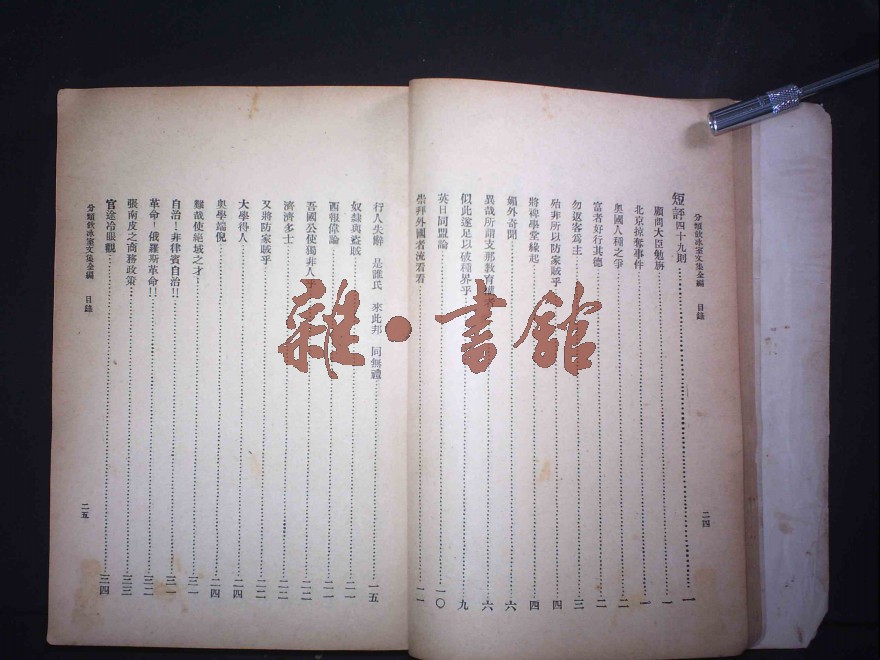 分類飲冰室文集全編 目錄
短評四十九則 一
顧問大臣勉旃 一
北京掠奪事件 一
奧國人種之爭 二
富者好行其德 二
勿返客爲主 三
殆非所以防家賊乎 四
將裨學堂緣起 四
媚外奇聞 六
異哉所謂支那教育權 六
似此遂足以破種界乎 九
英日同盟論 一〇
崇拜外國者流看看 一一
二四
行人失辭 是誰氏 來此邦 同無禮 一五
奴隸與盜賊 二一
西報偉論 二一
吾國公使獨非人乎 二二
濟濟多士 二二
又將防家賊乎 二二
大學得人 二四
奧學端倪 二四
難哉使絕域之才！ 三一
自治！非律賓自治！！ 三一
革命！俄羅斯革命！！ 三二
張南皮之商務政策 三三
官途冷眼觀 三四
分類飲冰室文集全編 目錄
二五
雜·書館